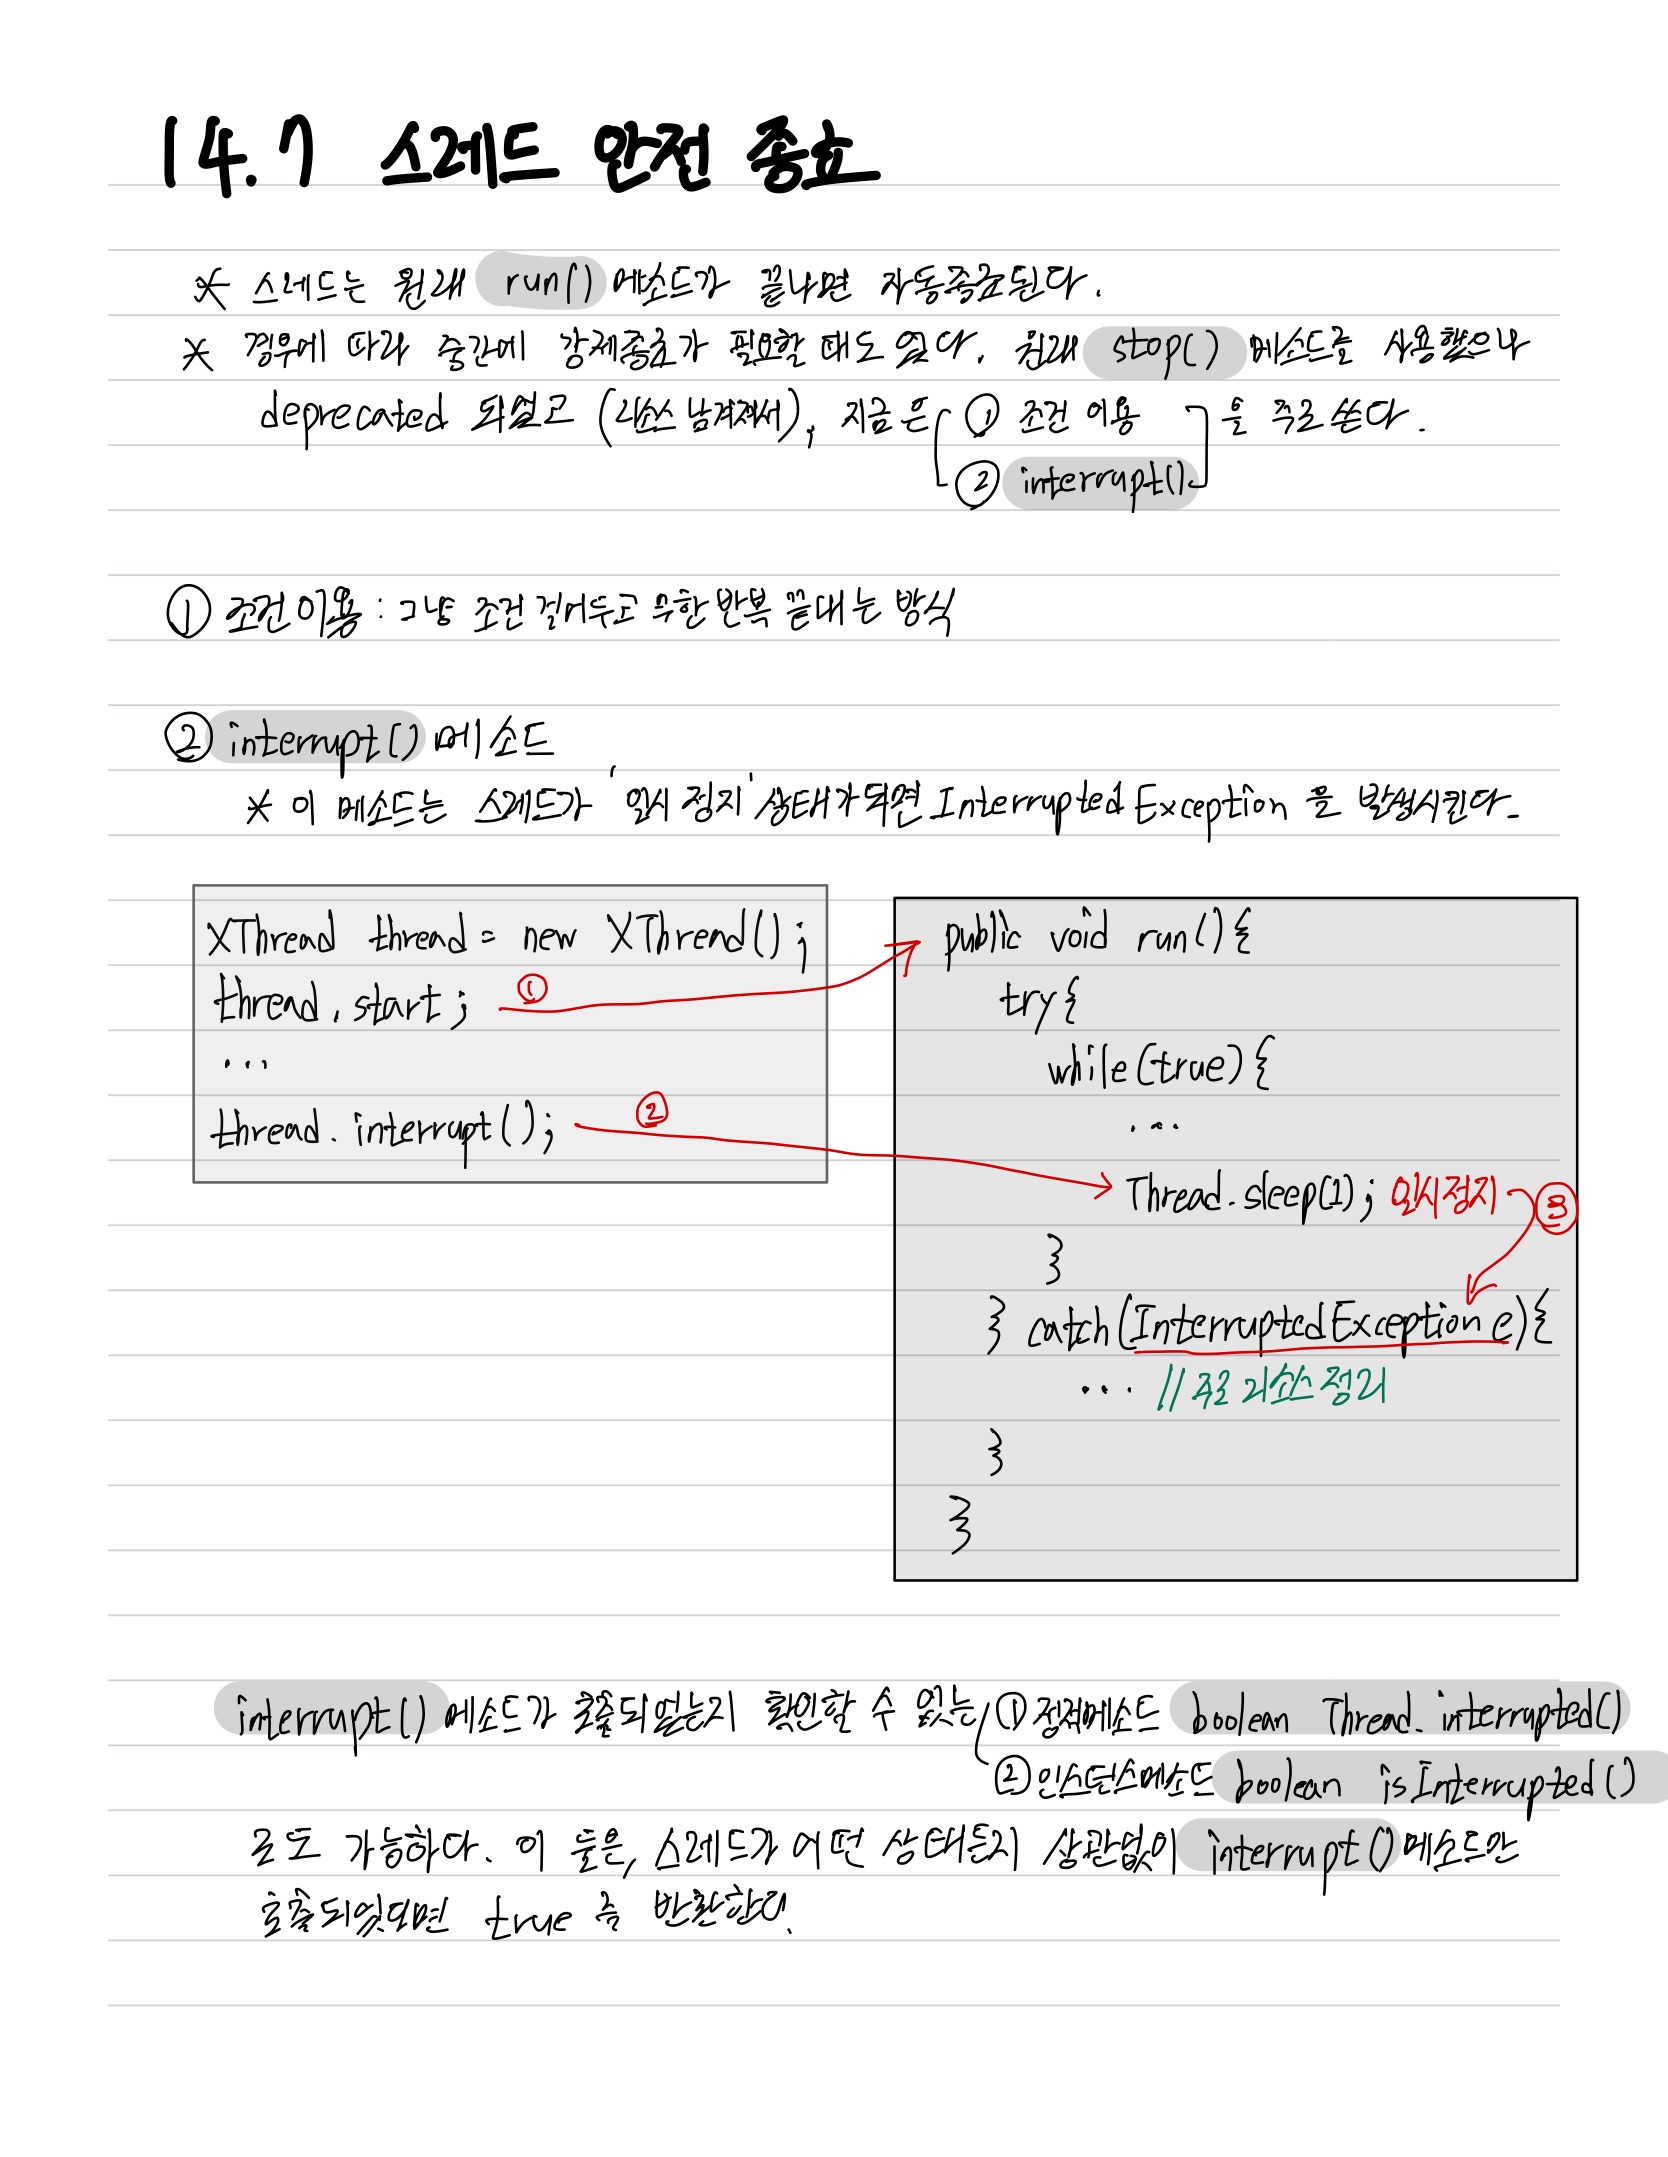 14.7 스레드 안전 종료
* 스레드는 원래 run() 메소드가 끝나면 자동종료된다.
* 경우에 따라 중간에 강제종료가 필요할 때도 있다. 원래 stop() 메소드를 사용했으나
deprecated 되었고 (리소스 남겨져서), 지금은 ① 조건 이용 을 주로 쓴다.
② interrupt()
① 조건이용 : 그냥 조건 걸어두고 무한반복 끝내는 방식
② interrupt() 메소드
* 이 메소드는 스레드가 '일시 정지' 상태가 되면 InterruptedException 을 발생시킨다.
XThread thread = new XThread();
thread.start; ①
...
thread.interrupt(); ②
public void run(){
try{
while(true){
...
Thread.sleep(1); 일시정지 ③
}
} catch(InterruptedException e){
... // 주로 리소스 정리
}
}
interrupt() 메소드가 호출되었는지 확인할 수 있는 ① 정적메소드 boolean Thread.interrupted()
② 인스턴스메소드 boolean isInterrupted()
로도 가능하다. 이 둘은, 스레드가 어떤 상태든지 상관없이 interrupt() 메소드만
호출되었다면 true 를 반환한다.